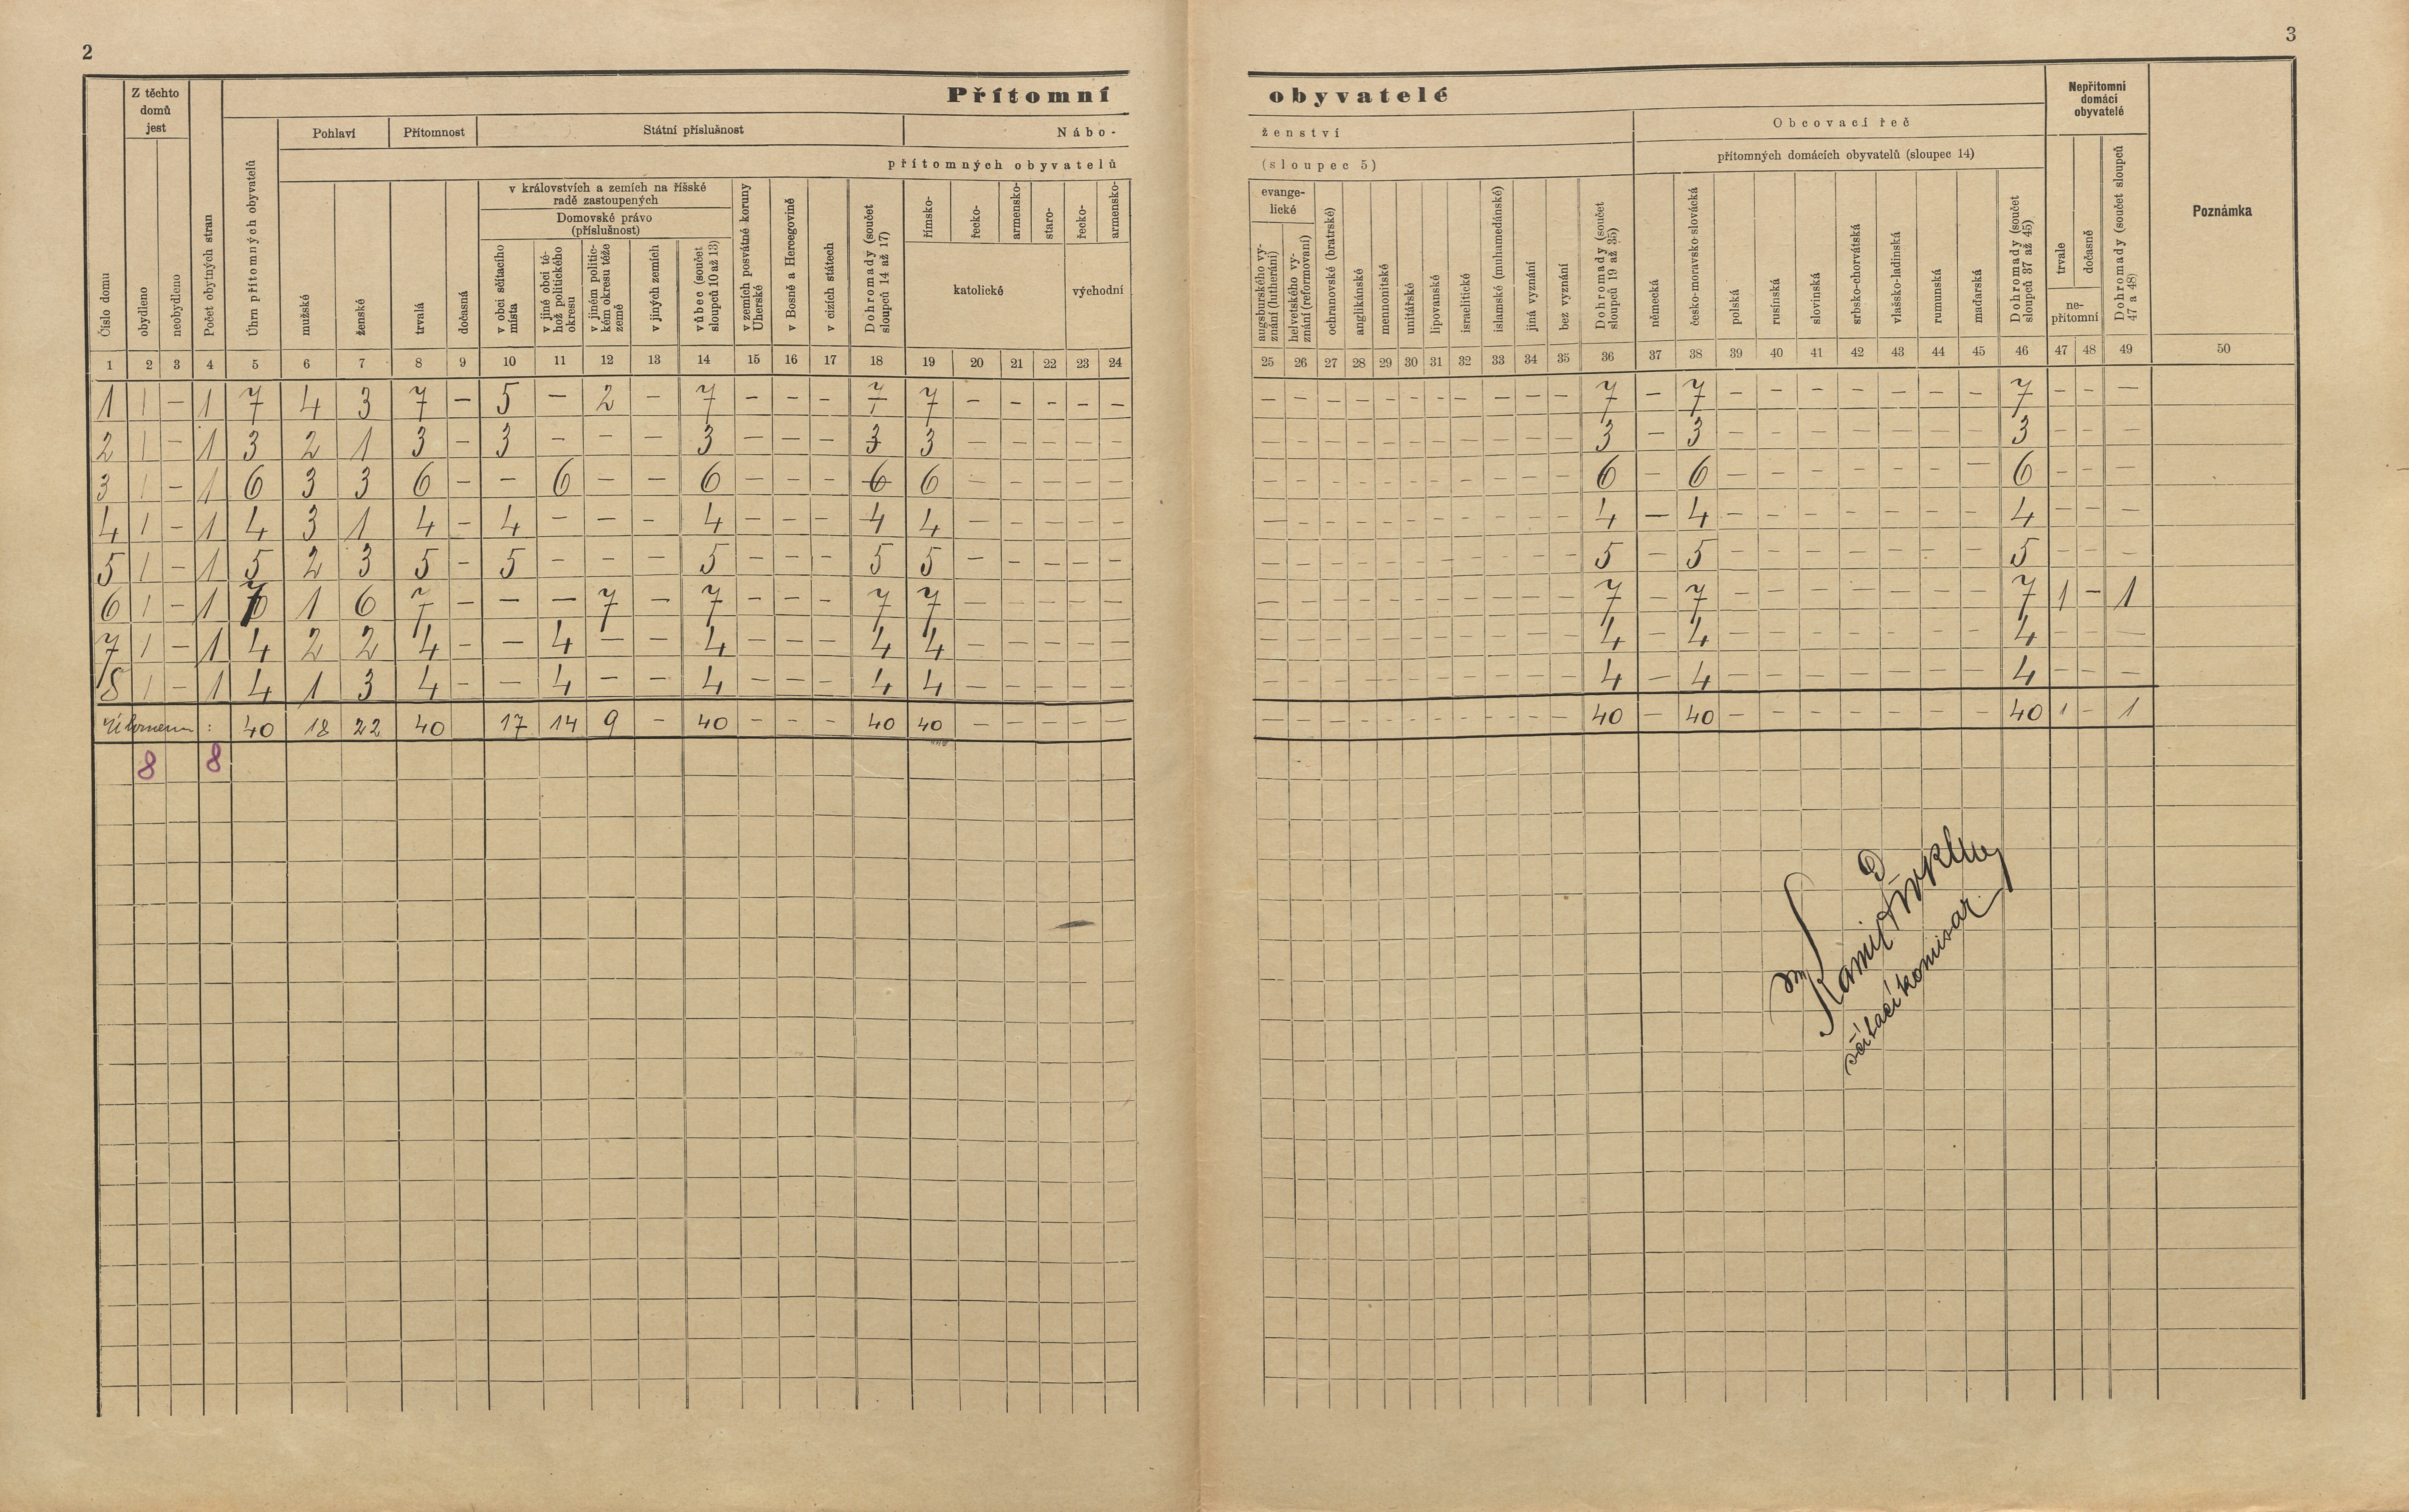 2
3
Přítomní obyvatelé
Z těchto domů jest
Pohlaví
Přítomnost
Státní příslušnost
Nábo-
ženství
přítomných obyvatelů
(sloupec 5)
Obcovací řeč
přítomných domácích obyvatelů (sloupec 14)
Nepřítomní domácí obyvatelé
Poznámka
Číslo domu
obydleno
neobydleno
Počet obytných stran
Úhrn přítomných obyvatelů
mužské
ženské
trvalá
dočasná
v královstvích a zemích na říšské radě zastoupených
Domovské právo (příslušnost)
v obci sčítacího místa
v jiné obci téhož politického okresu
v jiném politickém okresu téže země
v jiných zemích
vůbec (součet sloupců 10 až 13)
v zemích posvátné koruny Uherské
v Bosně a Hercegovině
v cizích státech
Dohromady (součet sloupců 14 až 17)
římsko-
řecko-
armensko-
staro-
katolické
řecko-
armensko-
východní
evange-
lické
augsburského vyznání (lutheráni)
helvetského vyznání (reformovaní)
ochranovské (bratrské)
anglikánské
mennonitské
unitářské
lipovanské
israelitické
islamské (muhamedánské)
jiná vyznání
bez vyznání
Dohromady (součet sloupců 19 až 35)
německá
česko-moravsko-slovácká
polská
rusínská
slovinská
srbsko-chorvátská
vlašsko-ladinská
rumunská
maďarská
Dohromady (součet sloupců 37 až 45)
trvale
dočasně
ne-
přítomní
Dohromady (součet sloupců 47 a 48)
1 2 3 4 5 6 7 8 9 10 11 12 13 14 15 16 17 18 19 20 21 22 23 24 25 26 27 28 29 30 31 32 33 34 35 36 37 38 39 40 41 42 43 44 45 46 47 48 49 50
1 1 – 1 7 4 3 7 – 5 – 2 – 7 – – – 7 7 – – – – – – – – – – – – – – – – 7 – 7 – – – – – – – 7 – – –
2 1 – 1 3 2 1 3 – 3 – – – 3 – – – 3 3 – – – – – – – – – – – – – – – – 3 – 3 – – – – – – – 3 – – –
3 1 – 1 6 3 3 6 – – 6 – – 6 – – – 6 6 – – – – – – – – – – – – – – – – 6 – 6 – – – – – – – 6 – – –
4 1 – 1 4 3 1 4 – 4 – – – 4 – – – 4 4 – – – – – – – – – – – – – – – – 4 – 4 – – – – – – – 4 – – –
5 1 – 1 5 2 3 5 – 5 – – – 5 – – – 5 5 – – – – – – – – – – – – – – – – 5 – 5 – – – – – – – 5 – – –
6 1 – 1 7 1 6 7 – – – 7 – 7 – – – 7 7 – – – – – – – – – – – – – – – – 7 – 7 – – – – – – – 7 1 – 1
7 1 – 1 4 2 2 4 – – 4 – – 4 – – – 4 4 – – – – – – – – – – – – – – – – 4 – 4 – – – – – – – 4 – – –
8 1 – 1 4 1 3 4 – – 4 – – 4 – – – 4 4 – – – – – – – – – – – – – – – – 4 – 4 – – – – – – – 4 – – –
Úhrnem : 40 18 22 40 17 14 9 – 40 – – – 40 40 – – – – – – – – – – – – – – – – 40 – 40 – – – – – – – 40 1 – 1
8 8
sčítací komisar